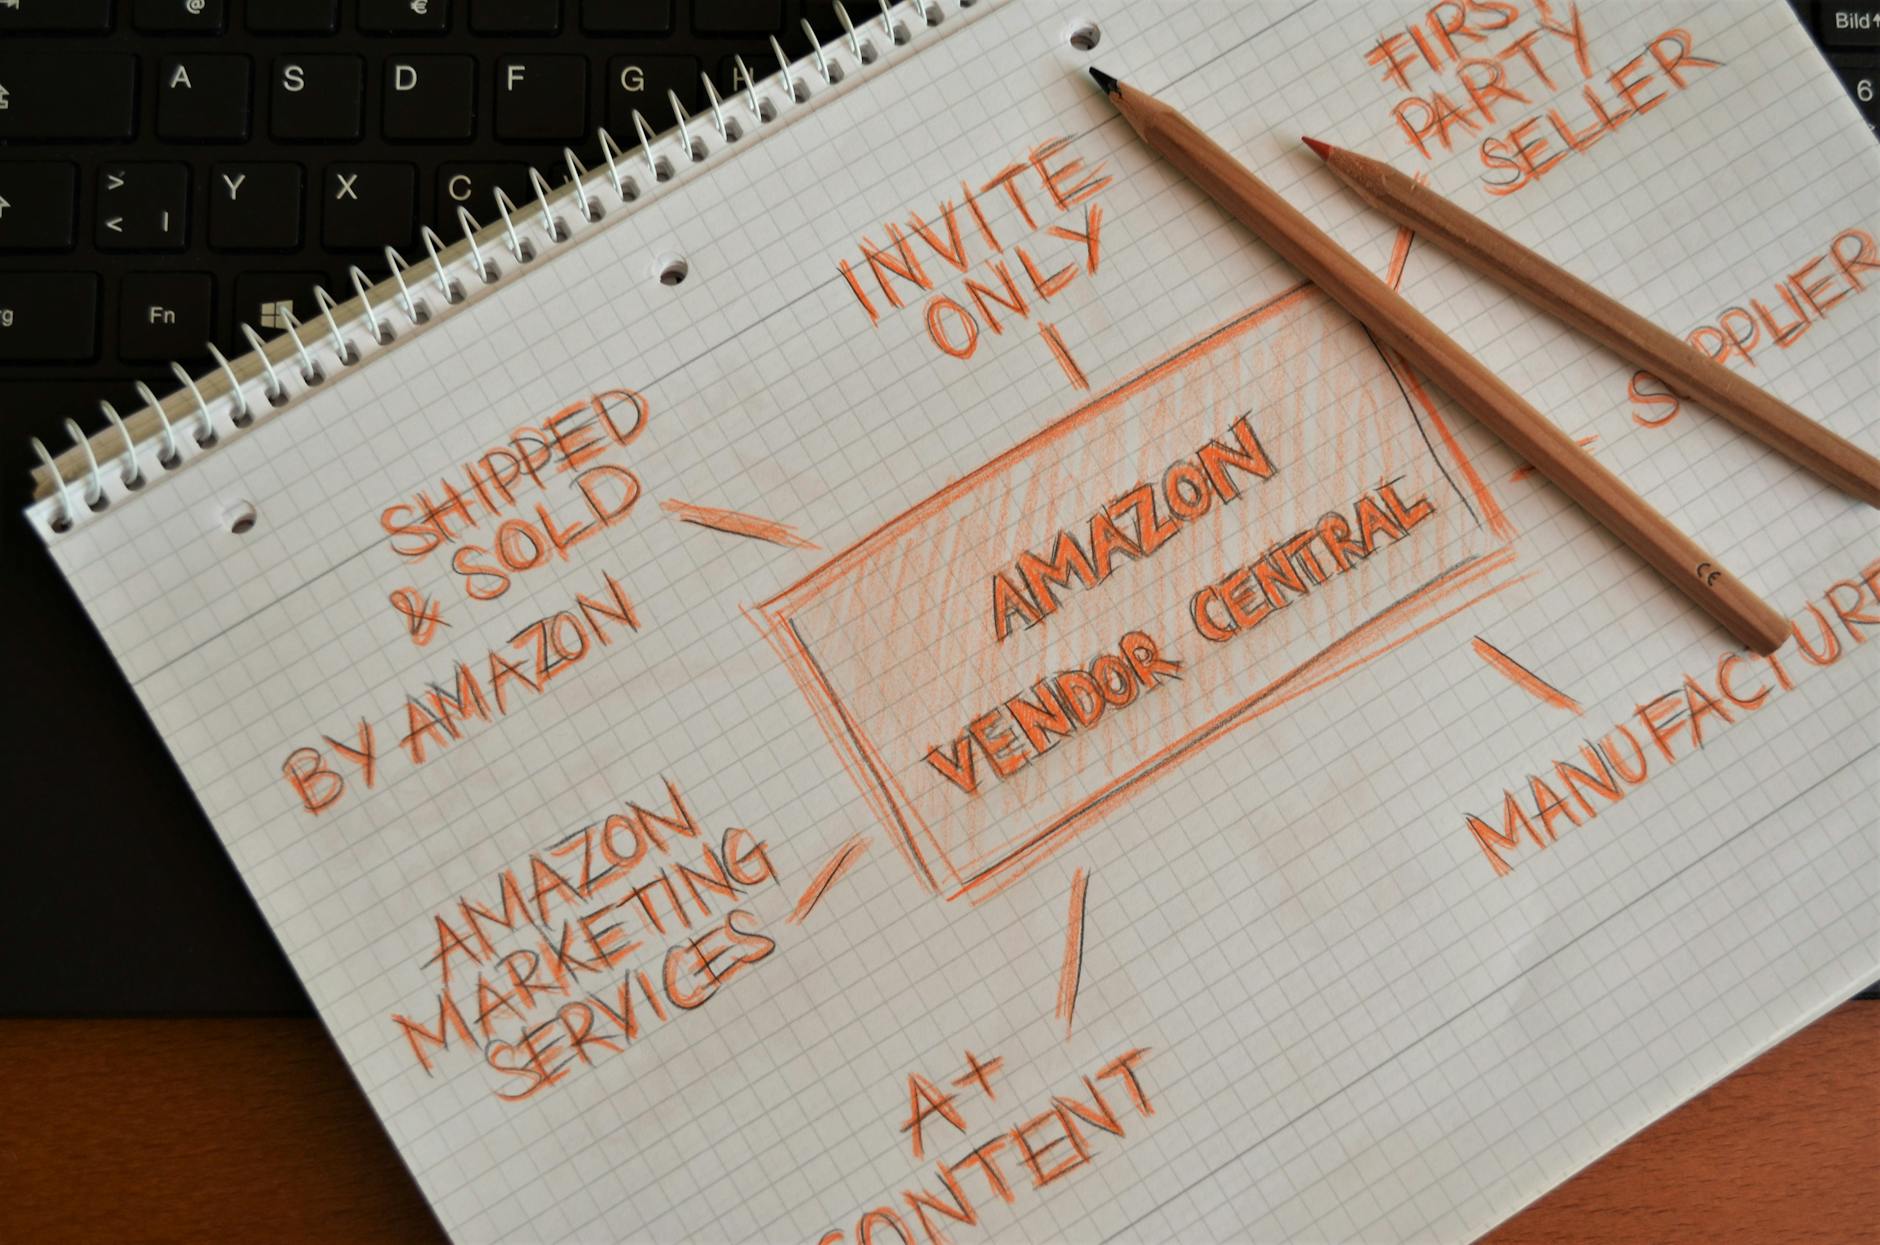 @
€
Bild
A
S
D
F
G
H
6
>
<
|
Y
X
C
Fn
FIRST
PARTY
SELLER
INVITE
ONLY
SUPPLIER
SHIPPED
& SOLD
BY AMAZON
AMAZON
VENDOR CENTRAL
MANUFACTURE
AMAZON
MARKETING
SERVICES
A+
CONTENT
CE